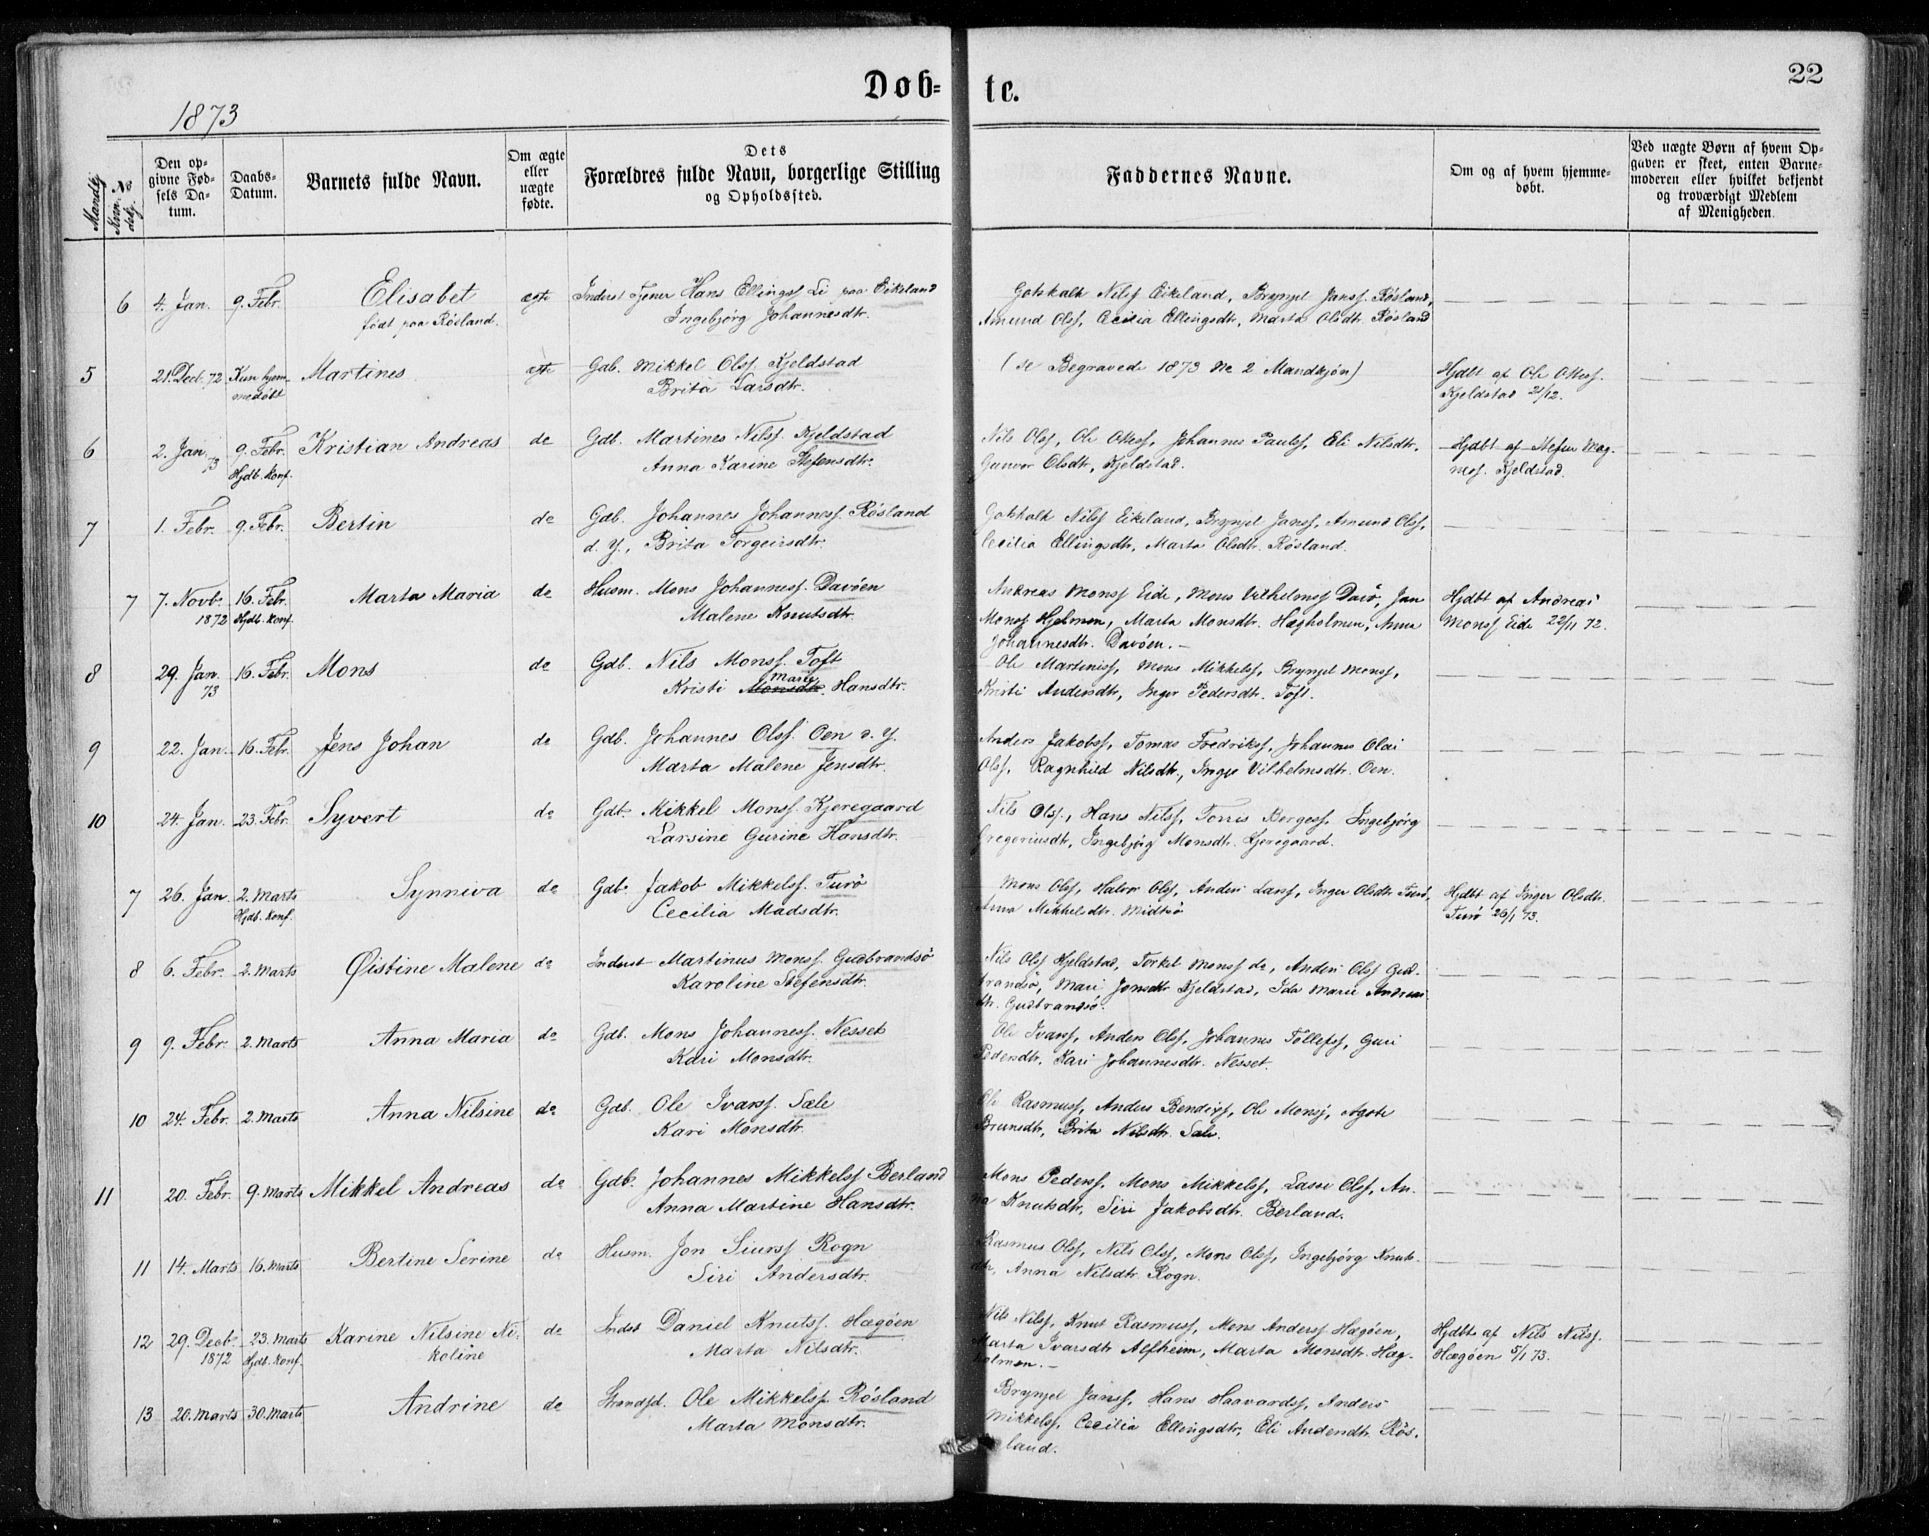 22
Døb= te.
1873
Mandkj.
No
Kvindekj.
Den opgivne Fødsels Datum.
Daabs-Datum.
Barnets fulde Navn.
Om ægte eller uægte fødte.
Dets Forældres fulde Navn, borgerlige Stilling og Opholdssted.
Faddernes Navne.
Om og af hvem hjemmedøbt.
Ved uægte Børn af hvem Opgaven er skeet, enten Barnemoderen eller hvilket bekjendt og troværdigt Medlem af Menigheden.
6 4. Jan. 9. Febr. Elisabet ægte Inderst Tjener Hans Ellingss. Li paa Eikeland Gotskalk Nilss Eikeland, Brynjel Janss. Røsland,
født paa Røsland. Ingebjørg Johannesdtr. Amund Olss, Cecilia Ellingsdtr, Marta Olsdtr. Røsland
5 21. Dec. 72 Kun hjem- Martines ægte Gdb. Mikkel Olss. Kjeldstad (se Begravede 1873 No 2 Mandkjøn) Hjdbt af Ole Ottess.
medøbt Brita Larsdtr. Kjeldstad 21/12.
6 2. Jan. 9. Febr. Kristian Andreas do Gdb. Martines Nilss. Kjeldstad Nils Olss, Ole Ottess, Johannes Paulss, Eli Nilsdtr, Hjdbt af Stefen Mag-
73 Hjdb. konf. Anna Karine Stefensdtr. Gunvor Olsdtr, Kjeldstad. ness. Kjeldstad.
7 1. Febr. 9. Febr. Bertin do Gdb. Johannes Johanness. Røsland Gotskalk Nilss Eikeland, Brynjel Janss, Amund Olss,
d. Y., Brita Torgeirsdtr. Cecilia Ellingsdtr, Marta Olsdtr. Røsland.
7 7. Novb. 16. Febr. Marta Maria do Husm. Mons Johanness. Davøen Andreas Monss Eide, Mons Vilhelmss Davø, Jan Hjdbt af Andreas
1872 Hjdb. konf. Malene Knutsdtr. Monss Hjelmen, Marta Monsdtr. Hægholmen, Anna Monss Eide 22/11 72.
Johannesdtr. Davøen.
8 29. Jan. 16. Febr. Mons do Gdb. Nils Monss. Toft Ole Martinss, Mons Mikkelss, Brynjel Monss,
73 Kristi Monsdtr. Marie Hansdtr. Kristi Andersdtr, Inger Pedersdtr. Toft.
9 22. Jan. 16. Febr. Jens Johan do Gdb. Johannes Olss. Oen d. Y. Anders Jakobss, Tomas Fredrikss, Johannes Olai
Marta Malene Jensdtr. Olss, Ragnhild Nilsdtr, Inger Vilhelmsdtr. Oen.
10 24. Jan. 23. Febr. Syvert do Gdb. Mikkel Monss. Kjeregaard Nils Olss., Hans Nilss, Torris Børgess. Ingebjørg
Larsine Gurine Hansdtr. Gregoriusdtr, Ingebjørg Monsdtr. Kjeregaard.
7 26. Jan. 2. Marts Synniva do Gdb. Jakob Mikkelss. Turø Mons Olss, Halvor Olss, Anders Larss, Inger Olsdtr Turø, Hjdbt af Inger Olsdtr.
Hjdb. konf. Cecilia Madsdtr. Anna Mikkelsdtr. Midtsø Turø 26/1 73.
8 6. Febr. 2. Marts Øistine Malene do Inderst Martinus Monss. Gudbrandsø Nils Olss Kjeldstad, Torkel Monss do, Anders Olss Gud-
Karoline Stefensdtr. brandsø, Mari Jonsdtr Kjeldstad, Ida Marie Andreas-
dtr. Gudbrandsø.
9 9. Febr. 2. Marts Anna Maria do Gdb. Mons Johanness. Nesset Ole Ivarss, Anders Olss, Johannes Tollefss, Guri
Kari Monsdtr. Pedersdtr, Kari Johannesdtr. Nesset.
10 24. Febr. 2. Marts Anna Nilsine do Gdb. Ole Ivarss. Sæle Ole Rasmuss, Anders Bendixs, Ole Monss, Agote
Kari Monsdtr. Brunsdtr, Brita Nilsdtr. Sæle.
11 20. Febr. 9. Marts Mikkel Andreas do Gdb. Johannes Mikkelss Berland Mons Pederss, Mons Mikkelss, Lasse Olss, An-
Anna Martine Hansdtr. na Knutsdtr, Siri Jakobsdtr. Berland.
11 14. Marts 16. Marts Bertine Serine do Husm. Jon Siurss Rogn Rasmus Olss, Nils Olss, Mons Olss, Ingebjørg Knuts-
Siri Andersdtr. dtr, Anna Nilsdtr. Rogn.
12 29. Decb. 23. Marts Karine Nilsine Ni- do Inderst Daniel Knutss. Hægøen Nils Nilss, Knut Rasmuss, Mons Anderss Hægøen, Hjdbt af Nils Nilss.
1872 Hjdb. konf. koline Marta Nilsdtr. Marta Ivarsdtr Alfheim, Marta Monsdtr. Hæg- Hægøen 5/1 73.
holmen.
13 20. Marts 30. Marts Andrine do Strandsd. Ole Mikkelss. Røsland Brynjel Janss, Hans Haavardss, Anders
Marta Monsdtr. Mikkelss, Cecilia Ellingsdtr, Eli Andersdtr Røs-
land.